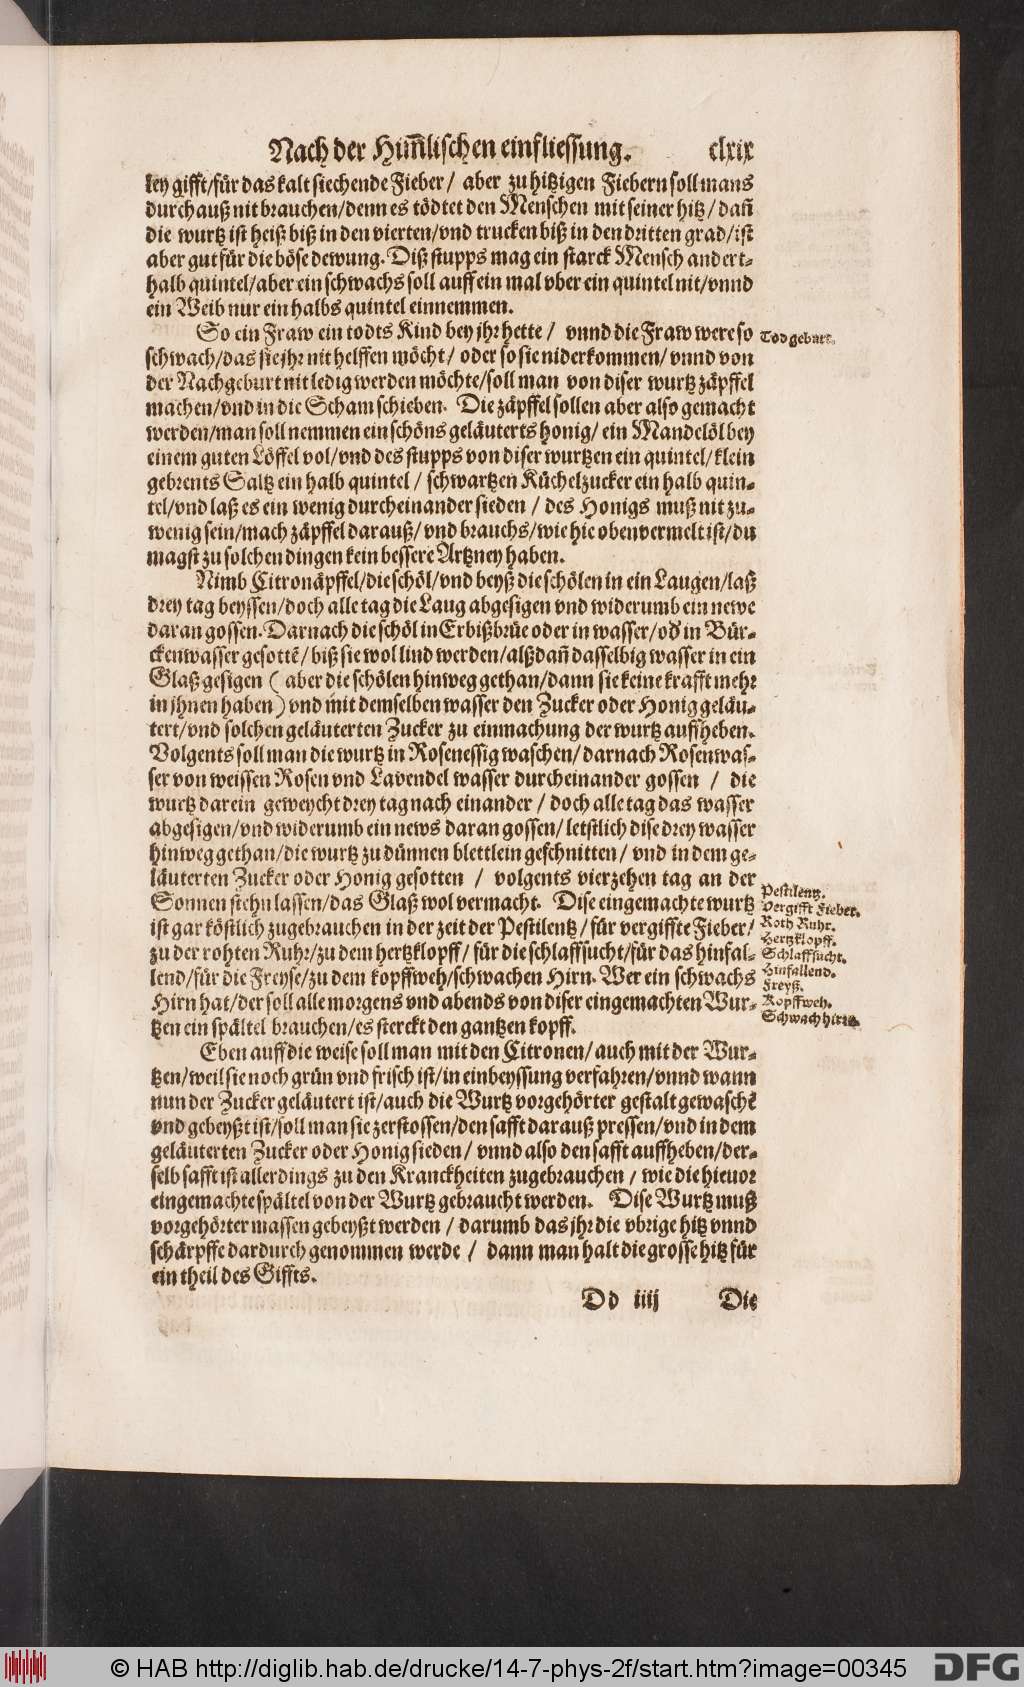 Nach der Him̃lischen einfliessung. clxix
key gifft/für das kalt siechende Fieber/ aber zu hitzigen Fiebern soll mans
durch auß nit brauchen/denn es tödtet den Menschen mit seiner hitz/dañ
die wurtz ist heiß biß in den vierten/vnd trucken biß in den dritten grad/ist
aber gut für die böse dewung. Diß stupps mag ein starck Mensch andert-
halb quintel/aber ein schwachs soll auff ein mal vber ein quintel nit/vnnd
ein Weib nur ein halbs quintel einnemmen.
So ein Fraw ein todts Kind bey jhr hette/ vnnd die Fraw were so
Tod geburt.
schwach/das sie jhr nit helffen möcht/ oder so sie niderkommen/ vnnd von
der Nachgeburt nit ledig werden möchte/soll man von diser wurtz zäpffel
machen/vnd in die Scham schieben. Die zäpffel sollen aber also gemacht
werden/man soll nemmen ein schöns geläuterts honig/ ein Mandelöl bey
einem guten Löffel vol/vnd des stupps von diser wurtzen ein quintel/klein
gebrents Saltz ein halb quintel / schwartzen Küchelzucker ein halb quin-
tel/vnd laß es ein wenig durcheinander sieden / des Honigs muß nit zu-
wenig sein/mach zäpffel darauß/ vnd brauchs/wie hie oben vermelt ist/du
magst zu solchen dingen kein bessere Artzney haben.
Nimb Citronäpffel/die schöl/vnd beyß die schölen in ein Laugen/laß
drey tag beyssen/doch alle tag die Laug abgesigen vnd widerumb ein newe
daran gossen. Darnach die schöl in Erbißbrüe oder in wasser/od' in Bür-
ckenwasser gesottē/biß sie wol lind werden/alßdañ dasselbig wasser in ein
Glaß gesigen ( aber die schölen hinweg gethan/dann sie keine krafft mehr
in jhnen haben ) vnd mit demselben wasser den Zucker oder Honig geläu-
tert/vnd solchen geläuterten Zucker zu einmachung der wurtz auffheben.
Volgents soll man die wurtz in Rosenessig waschen/ darnach Rosenwas-
ser von weissen Rosen vnd Lavendel wasser durcheinander gossen / die
wurtz darein geweycht drey tag nach einander / doch alle tag das wasser
abgesigen/vnd widerumb ein news daran gossen/ letstlich dise drey wasser
hinweg gethan/die wurtz zu dünnen blettlein geschnitten/ vnd in dem ge-
läuterten Zucker oder Honig gesotten / volgents vierzehen tag an der
Sonnen stehn lassen/das Glaß wol vermacht. Dise eingemachte wurtz
ist gar köstlich zugebrauchen in der zeit der Pestilentz/für vergiffte Fieber/
zu der rohten Ruhr/zu dem hertzklopff/ für die schlaffsucht/für das hinfal-
lend/für die Freyse/zu dem kopffweh/schwachen Hirn. Wer ein schwachs
Hirn hat/der soll alle morgens vnd abends von diser eingemachten Wur-
tzen ein spältel brauchen/es sterckt den gantzen kopff.
Pestilentz.
Vergifft Fieber.
Roth Ruhr.
Hertzklopff.
Schlaffsucht.
Hinfallend.
Freyß.
Kopffweh.
Schwach hirn.
Eben auff die weise soll man mit den Citronen/auch mit der Wur-
tzen/weil sie noch grün vnd frisch ist/in einbeyssung verfahren/vnnd wann
nun der Zucker geläutert ist/auch die Wurtz vorgehörter gestalt gewaschē
vnd gebeyßt ist/soll man sie zerstossen/den safft darauß pressen/vnd in dem
geläuterten Zucker oder Honig sieden/ vnnd also den safft auffheben/der-
selb safft ist allerdings zu den Kranckheiten zugebrauchen / wie die hievor
eingemachte spältel von der Wurtz gebraucht werden. Dise Wurtz muß
vorgehörter massen gebeyßt werden / darumb das jhr die vbrige hitz vnnd
schärpffe dardurch genommen werde / dann man halt die grosse hitz für
ein theil des Giffts.
Dd iiij Die
© HAB http://diglib.hab.de/drucke/14-7-phys-2f/start.htm?image=00345
DFG